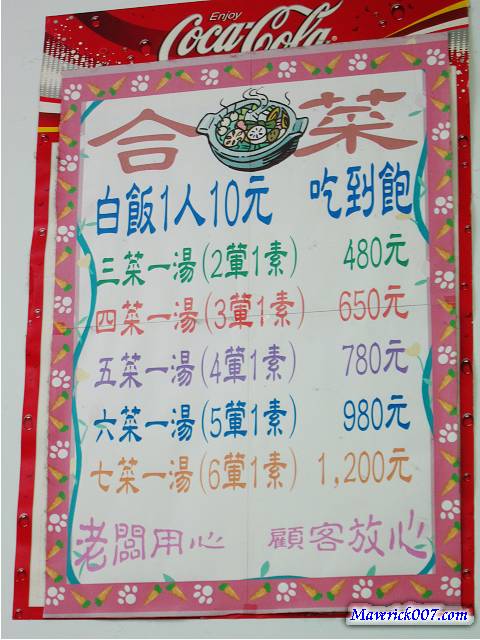 Enjoy
Coca-Cola
合菜
白飯1人10元 吃到飽
三菜一湯(2葷1素) 480元
四菜一湯(3葷1素) 650元
五菜一湯(4葷1素) 780元
六菜一湯(5葷1素) 980元
七菜一湯(6葷1素) 1,200元
老闆用心 顧客放心
Maverick007.com